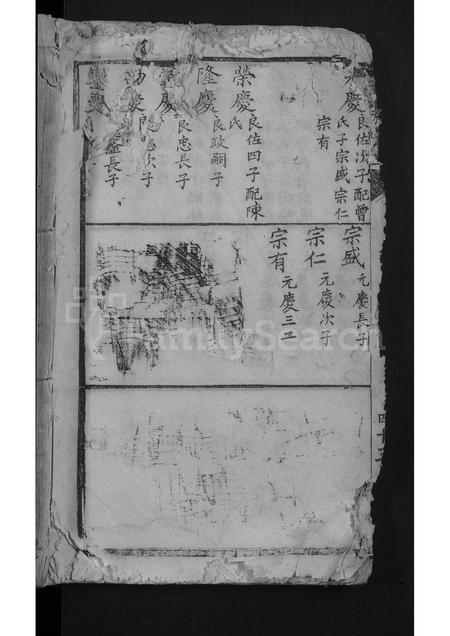 慶 良佐次子配曾
氏子宗盛宗仁
宗有
榮慶 良佐四子配陳
氏
隆慶 良政嗣子
慶 良忠長子
慶 次子
長子
宗盛 元慶長子
宗仁 元慶次子
宗有 元慶三
FamilySearch